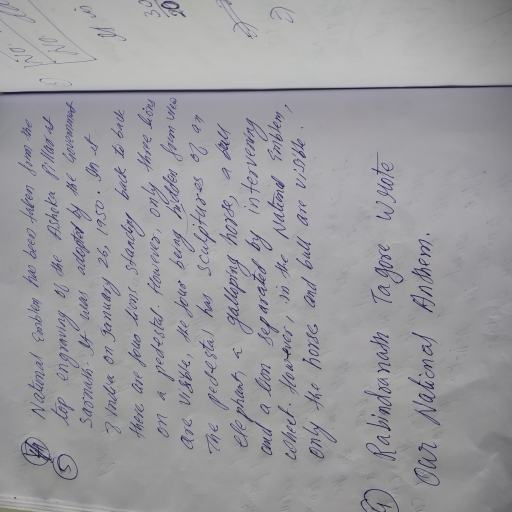 5
National Emblem has been taken from the
top engraving of the Ashoka Pillar at
Sarnath. It was adopted by the Government
of India on January 26, 1950. In it
there are four lions standing back to back
on a pedestal. However, only three lions
are visible, the four being hidden from view
The pedestal has sculptures of an
elephant, a galloping horse, a bull
and a lion separated by intervening
wheel. However, in the National Emblem,
only the horse and bull are visible.
Rabindranath Tagore Wrote
Our National Anthem.
30
20